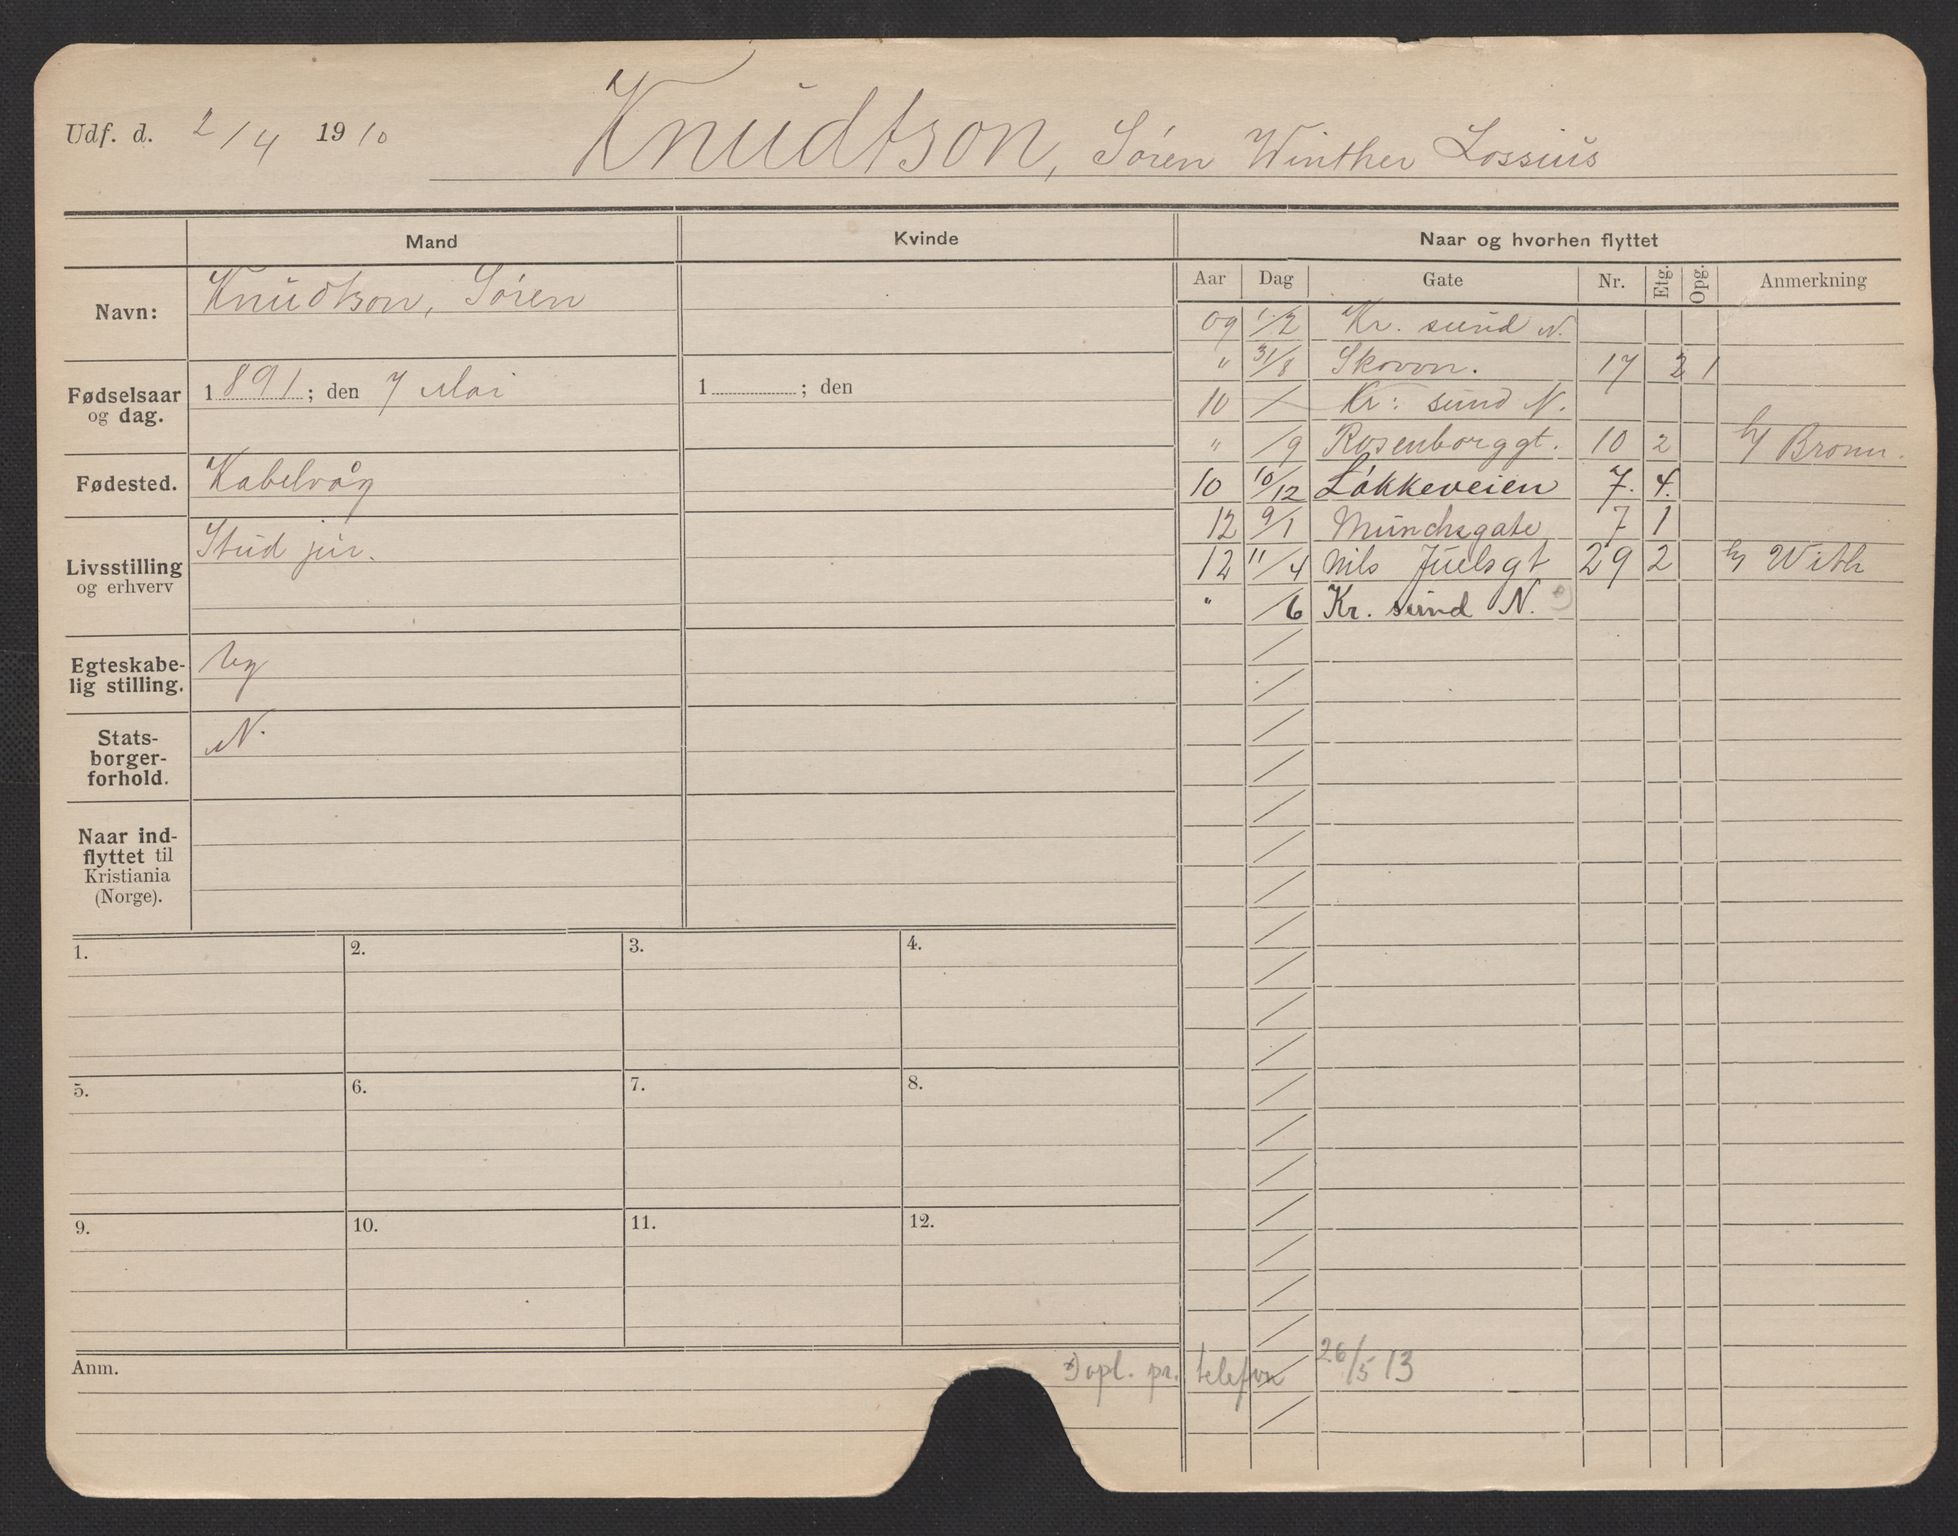 Udf. d. 2/4 1910 Knudtson, Søren Winther Lossius
Mand Kvinde Naar og hvorhen flyttet
Aar Dag Gate Nr. Etg. Opg. Anmerkning
Navn: Knudtson, Søren
Fødselsaar og dag. 1891; den 7 Mai 1 ; den
Fødested. Kabelvåg
Livsstilling og erhverv Stud jur.
Egteskabe-
lig stilling. Ug
Stats-
borger-
forhold. N.
Naar ind-
flyttet til
Kristiania
(Norge).
09 1/2 Kr. sund N.
" 31/8 Skovvn. 17 2 1
10 / Kr: sund N.
" /9 Rosenborggt. 10 2 h/
10 10/12 Løkkeveien 7. 4.
12 9/1 Munchsgate 7 1
12 11/4 Nils Juelsgt 29 2 h/ With
" /6 Kr. sund N. *)
1. 2. 3. 4.
5. 6. 7. 8.
9. 10. 11. 12.
Anm.
*) opl. pr. telefon 26/5 13